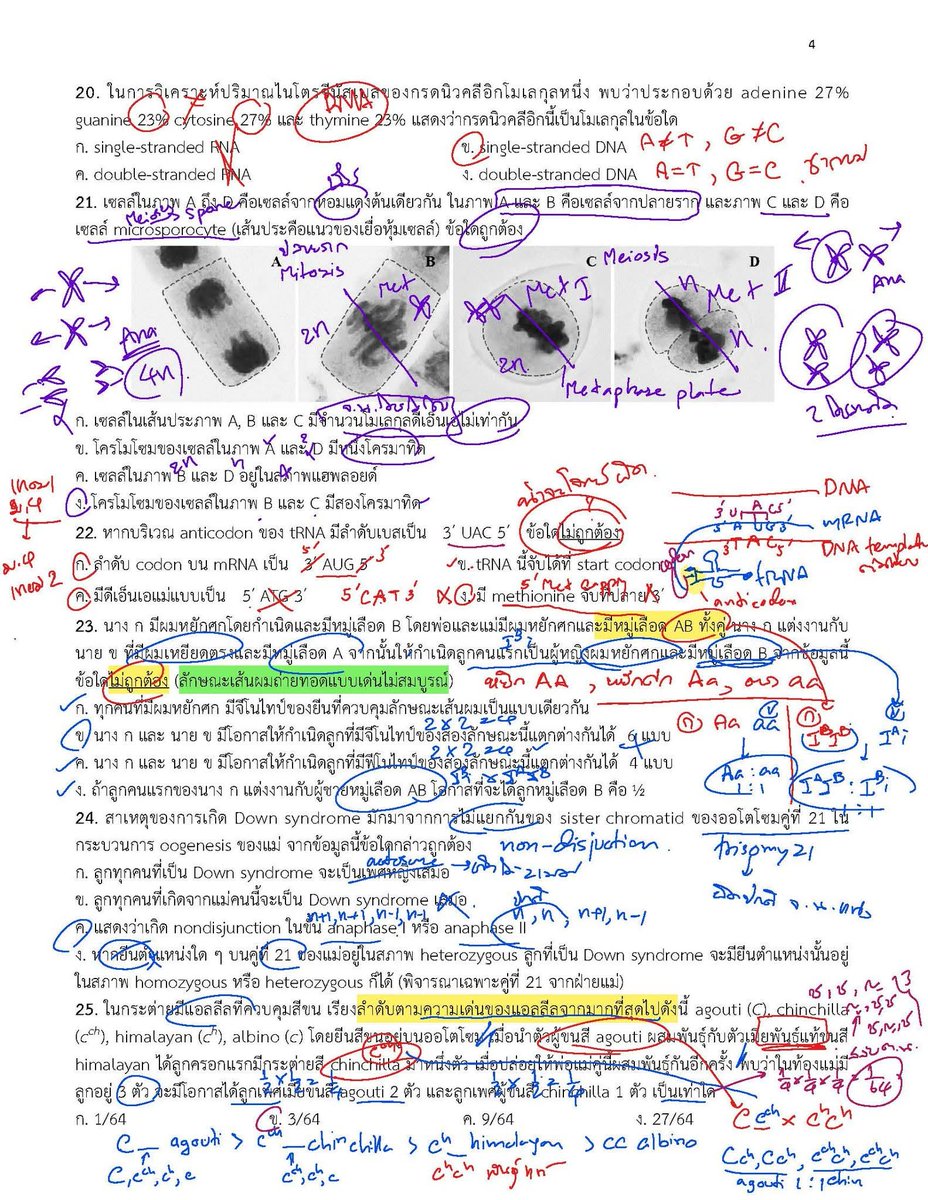 4
20. ในการวิเคราะห์ปริมาณไนโตรจีนัสเบสของกรดนิวคลีอิกโมเลกุลหนึ่ง พบว่าประกอบด้วย adenine 27%
DNA
guanine 23% cytosine 27% และ thymine 23% แสดงว่ากรดนิวคลีอิกนี้เป็นโมเลกุลในข้อใด
ก. single-stranded RNA ข. single-stranded DNA A≠T, G≠C
ค. double-stranded RNA ง. double-stranded DNA A=T, G=C
21. เซลล์ในภาพ A ถึง D คือเซลล์จากหอมแดงต้นเดียวกัน ในภาพ A และ B คือเซลล์จากปลายราก และภาพ C และ D คือ
เซลล์ microsporocyte (เส้นประคือแนวของเยื่อหุ้มเซลล์) ข้อใดถูกต้อง
ปลายราก
Mitosis
Meiosis
A B C D
Met
Met I
Met II
Ana
Ana
2n
2n
n
n
4n
Metaphase plate
ก. เซลล์ในเส้นประภาพ A, B และ C มีจำนวนโมเลกุลดีเอ็นเอไม่เท่ากัน
ข. โครโมโซมของเซลล์ในภาพ A และ D มีหนึ่งโครมาทิด
ค. เซลล์ในภาพ B และ D อยู่ในสภาพแฮพลอยด์
2n n
ง. โครโมโซมของเซลล์ในภาพ B และ C มีสองโครมาทิด
22. หากบริเวณ anticodon ของ tRNA มีลำดับเบสเป็น 3′ UAC 5′ ข้อใดไม่ถูกต้อง
DNA
mRNA
3' UAC 5'
5' AUG 3'
3' TAC 5'
DNA template
tRNA
anticodon
ก. ลำดับ codon บน mRNA เป็น 3′ AUG 5′ ข. tRNA นี้จับได้ที่ start codon
5' 3'
ค. มีดีเอ็นเอแม่แบบเป็น 5′ ATG 3′ 5'CAT3' ง. มี methionine จับที่ปลาย 3′
23. นาง ก มีผมหยักศกโดยกำเนิดและมีหมู่เลือด B โดยพ่อและแม่มีผมหยักศกและมีหมู่เลือด AB ทั้งคู่ นาง ก แต่งงานกับ
นาย ข ที่มีผมเหยียดตรงและมีหมู่เลือด A จากนั้นให้กำเนิดลูกคนแรกเป็นผู้หญิงผมหยักศกและมีหมู่เลือด B จากข้อมูลนี้
ข้อใดไม่ถูกต้อง (ลักษณะเส้นผมถ่ายทอดแบบเด่นไม่สมบูรณ์)
หยิก AA, หยักศก Aa, ตรง aa
ก. ทุกคนที่มีผมหยักศก มีจีโนไทป์ของยีนที่ควบคุมลักษณะเส้นผมเป็นแบบเดียวกัน
ข. นาง ก และ นาย ข มีโอกาสให้กำเนิดลูกที่มีจีโนไทป์ของสองลักษณะนี้แตกต่างกันได้ 6 แบบ
2 × 2 = 4
4
ค. นาง ก และ นาย ข มีโอกาสให้กำเนิดลูกที่มีฟีโนไทป์ของสองลักษณะนี้แตกต่างกันได้ 4 แบบ
2 × 2 = 4
ง. ถ้าลูกคนแรกของนาง ก แต่งงานกับผู้ชายหมู่เลือด AB โอกาสที่จะได้ลูกหมู่เลือด B คือ ½
ก Aa
ข aa
Aa : aa
1 : 1
I^B I^B
I^A i
I^A I^B : I^B i
1 : 1
24. สาเหตุของการเกิด Down syndrome มักมาจากการไม่แยกกันของ sister chromatid ของออโตโซมคู่ที่ 21 ใน
กระบวนการ oogenesis ของแม่ จากข้อมูลนี้ข้อใดกล่าวถูกต้อง
non-disjuction
trisomy 21
autosome
ก. ลูกทุกคนที่เป็น Down syndrome จะเป็นเพศหญิงเสมอ
ข. ลูกทุกคนที่เกิดจากแม่คนนี้จะเป็น Down syndrome เสมอ
n+1, n+1, n-1, n-1
ปกติ
n, n, n+1, n-1
ค. แสดงว่าเกิด nondisjunction ในขั้น anaphase I หรือ anaphase II
ง. หากยีนตำแหน่งใด ๆ บนคู่ที่ 21 ของแม่อยู่ในสภาพ heterozygous ลูกที่เป็น Down syndrome จะมียีนตำแหน่งนั้นอยู่
ในสภาพ homozygous หรือ heterozygous ก็ได้ (พิจารณาเฉพาะคู่ที่ 21 จากฝ่ายแม่)
25. ในกระต่ายมีแอลลีลที่ควบคุมสีขน เรียงลำดับตามความเด่นของแอลลีลจากมากที่สุดไปดังนี้ agouti (C), chinchilla
(c^ch), himalayan (c^h), albino (c) โดยยีนสีขนอยู่บนออโตโซม เมื่อนำตัวผู้ขนสี agouti ผสมพันธุ์กับตัวเมียพันธุ์แท้ขนสี
himalayan ได้ลูกครอกแรกมีกระต่ายสี chinchilla มาหนึ่งตัว เมื่อปล่อยให้พ่อแม่คู่นี้ผสมพันธุ์กันอีกครั้ง พบว่าในท้องแม่มี
ลูกอยู่ 3 ตัว จะมีโอกาสได้ลูกเพศเมียขนสี agouti 2 ตัว และลูกเพศผู้ขนสี chinchilla 1 ตัว เป็นเท่าใด
1/4 × 1/4 × 1/4 = 1/64
ก. 1/64 ข. 3/64 ค. 9/64 ง. 27/64
Cc^ch × c^h c^h
C_ agouti > c^ch_ chinchilla > c^h_ himalayan > cc albino
C, c^ch, c^h, c
c^ch, c^h, c
c^h c^h พันธุ์แท้
Cc^h, Cc^h, c^ch c^h, c^ch c^h
agouti 1 : 1 chin